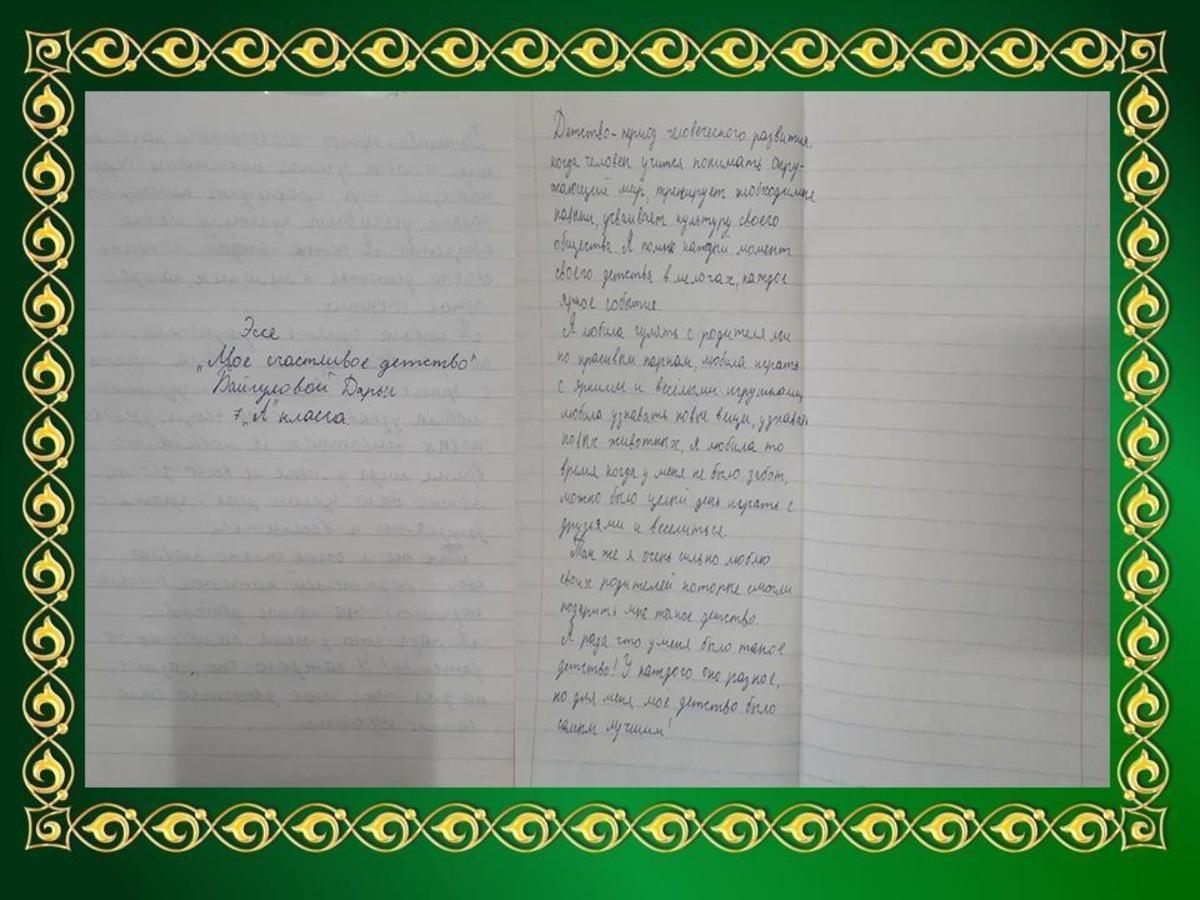 Эссе
„Моё счастливое детство“
Байгуловой Дарьи
7 „А“ класса
Детство - период человеческого развития,
когда человек учится понимать окру-
жающий мир, тренирует необходимые
навыки, усваивает культуру своего
общества. Я помню каждый момент
своего детства в мелочах, каждое
яркое событие.
Я любила гулять с родителями
по красивым паркам, любила играть
с яркими и весёлыми игрушками,
любила узнавать новые вещи, узнавать
новых животных, я любила то
время когда у меня не было забот,
можно было целый день играть с
друзьями и веселиться.
Так же я очень сильно люблю
своих родителей которые смогли
подарить мне такое детство.
Я рада что у меня было такое
детство! У каждого оно разное,
но для меня моё детство было
самым лучшим!